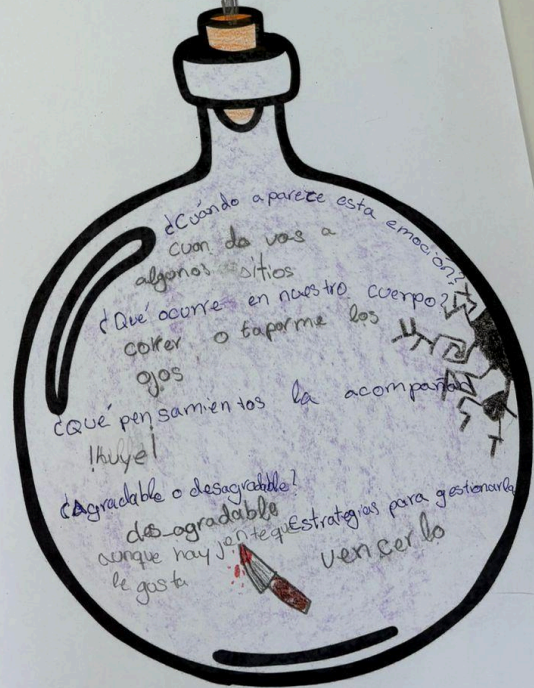 ¿Cuándo aparece esta emoción?
cuan do vas a
algunos sitios
¿Qué ocurre en nuestro cuerpo?
correr o taparme los
ojos
¿Qué pensamientos la acompañan
!huye!
¿Agradable o desagradable?
des_agradable
aunque hay jente que
le gusta
Estrategias para gestionarla
vencerlo